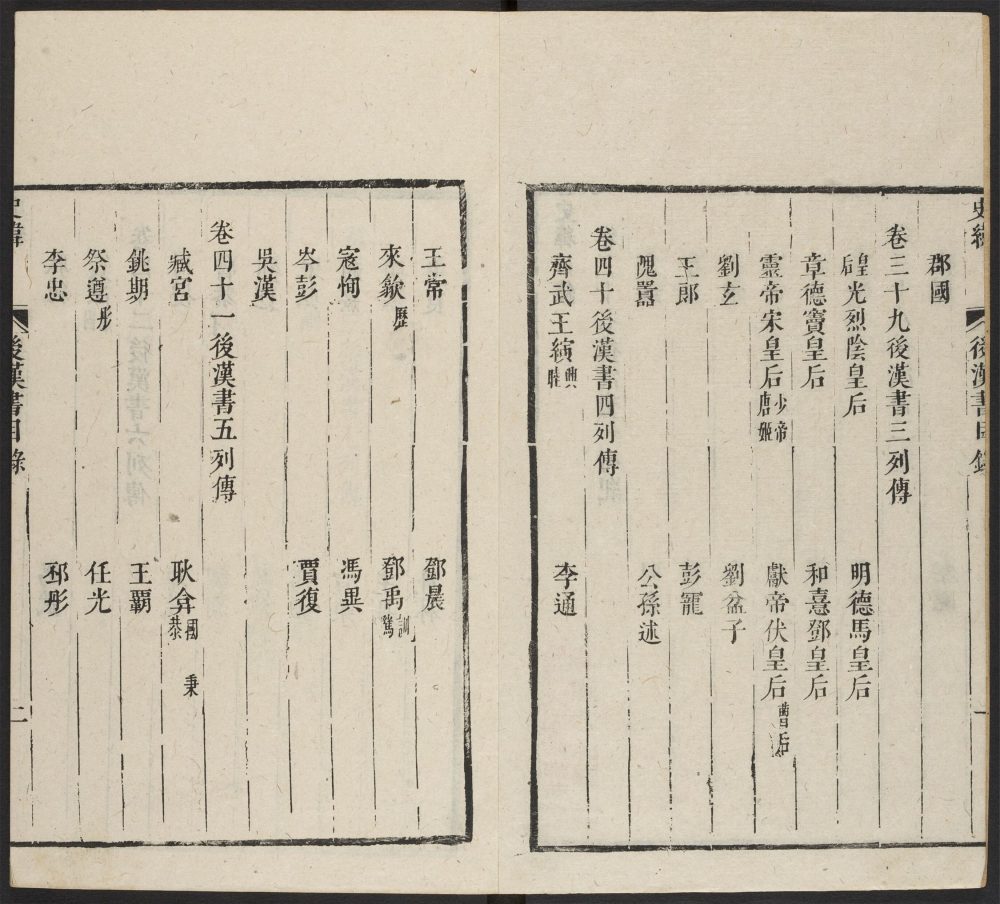 史緯 後漢書目錄 一
郡國
卷三十九後漢書三列傳
皇后光烈陰皇后 明德馬皇后
章德竇皇后 和憙鄧皇后
靈帝宋皇后 少帝唐姬 獻帝伏皇后 曹后
劉玄 劉盆子
王郎 彭寵
隗囂 公孫述
卷四十後漢書四列傳
齊武王縯 興 睦 李通
王常 鄧晨
來歙 歷 鄧禹 訓 騭
寇恂 馮異
岑彭 賈復
吳漢
卷四十一後漢書五列傳
臧宮 耿弇 國 秉 恭
銚期 王霸
祭遵 肜 任光
李忠 邳彤
史緯 後漢書目錄 二